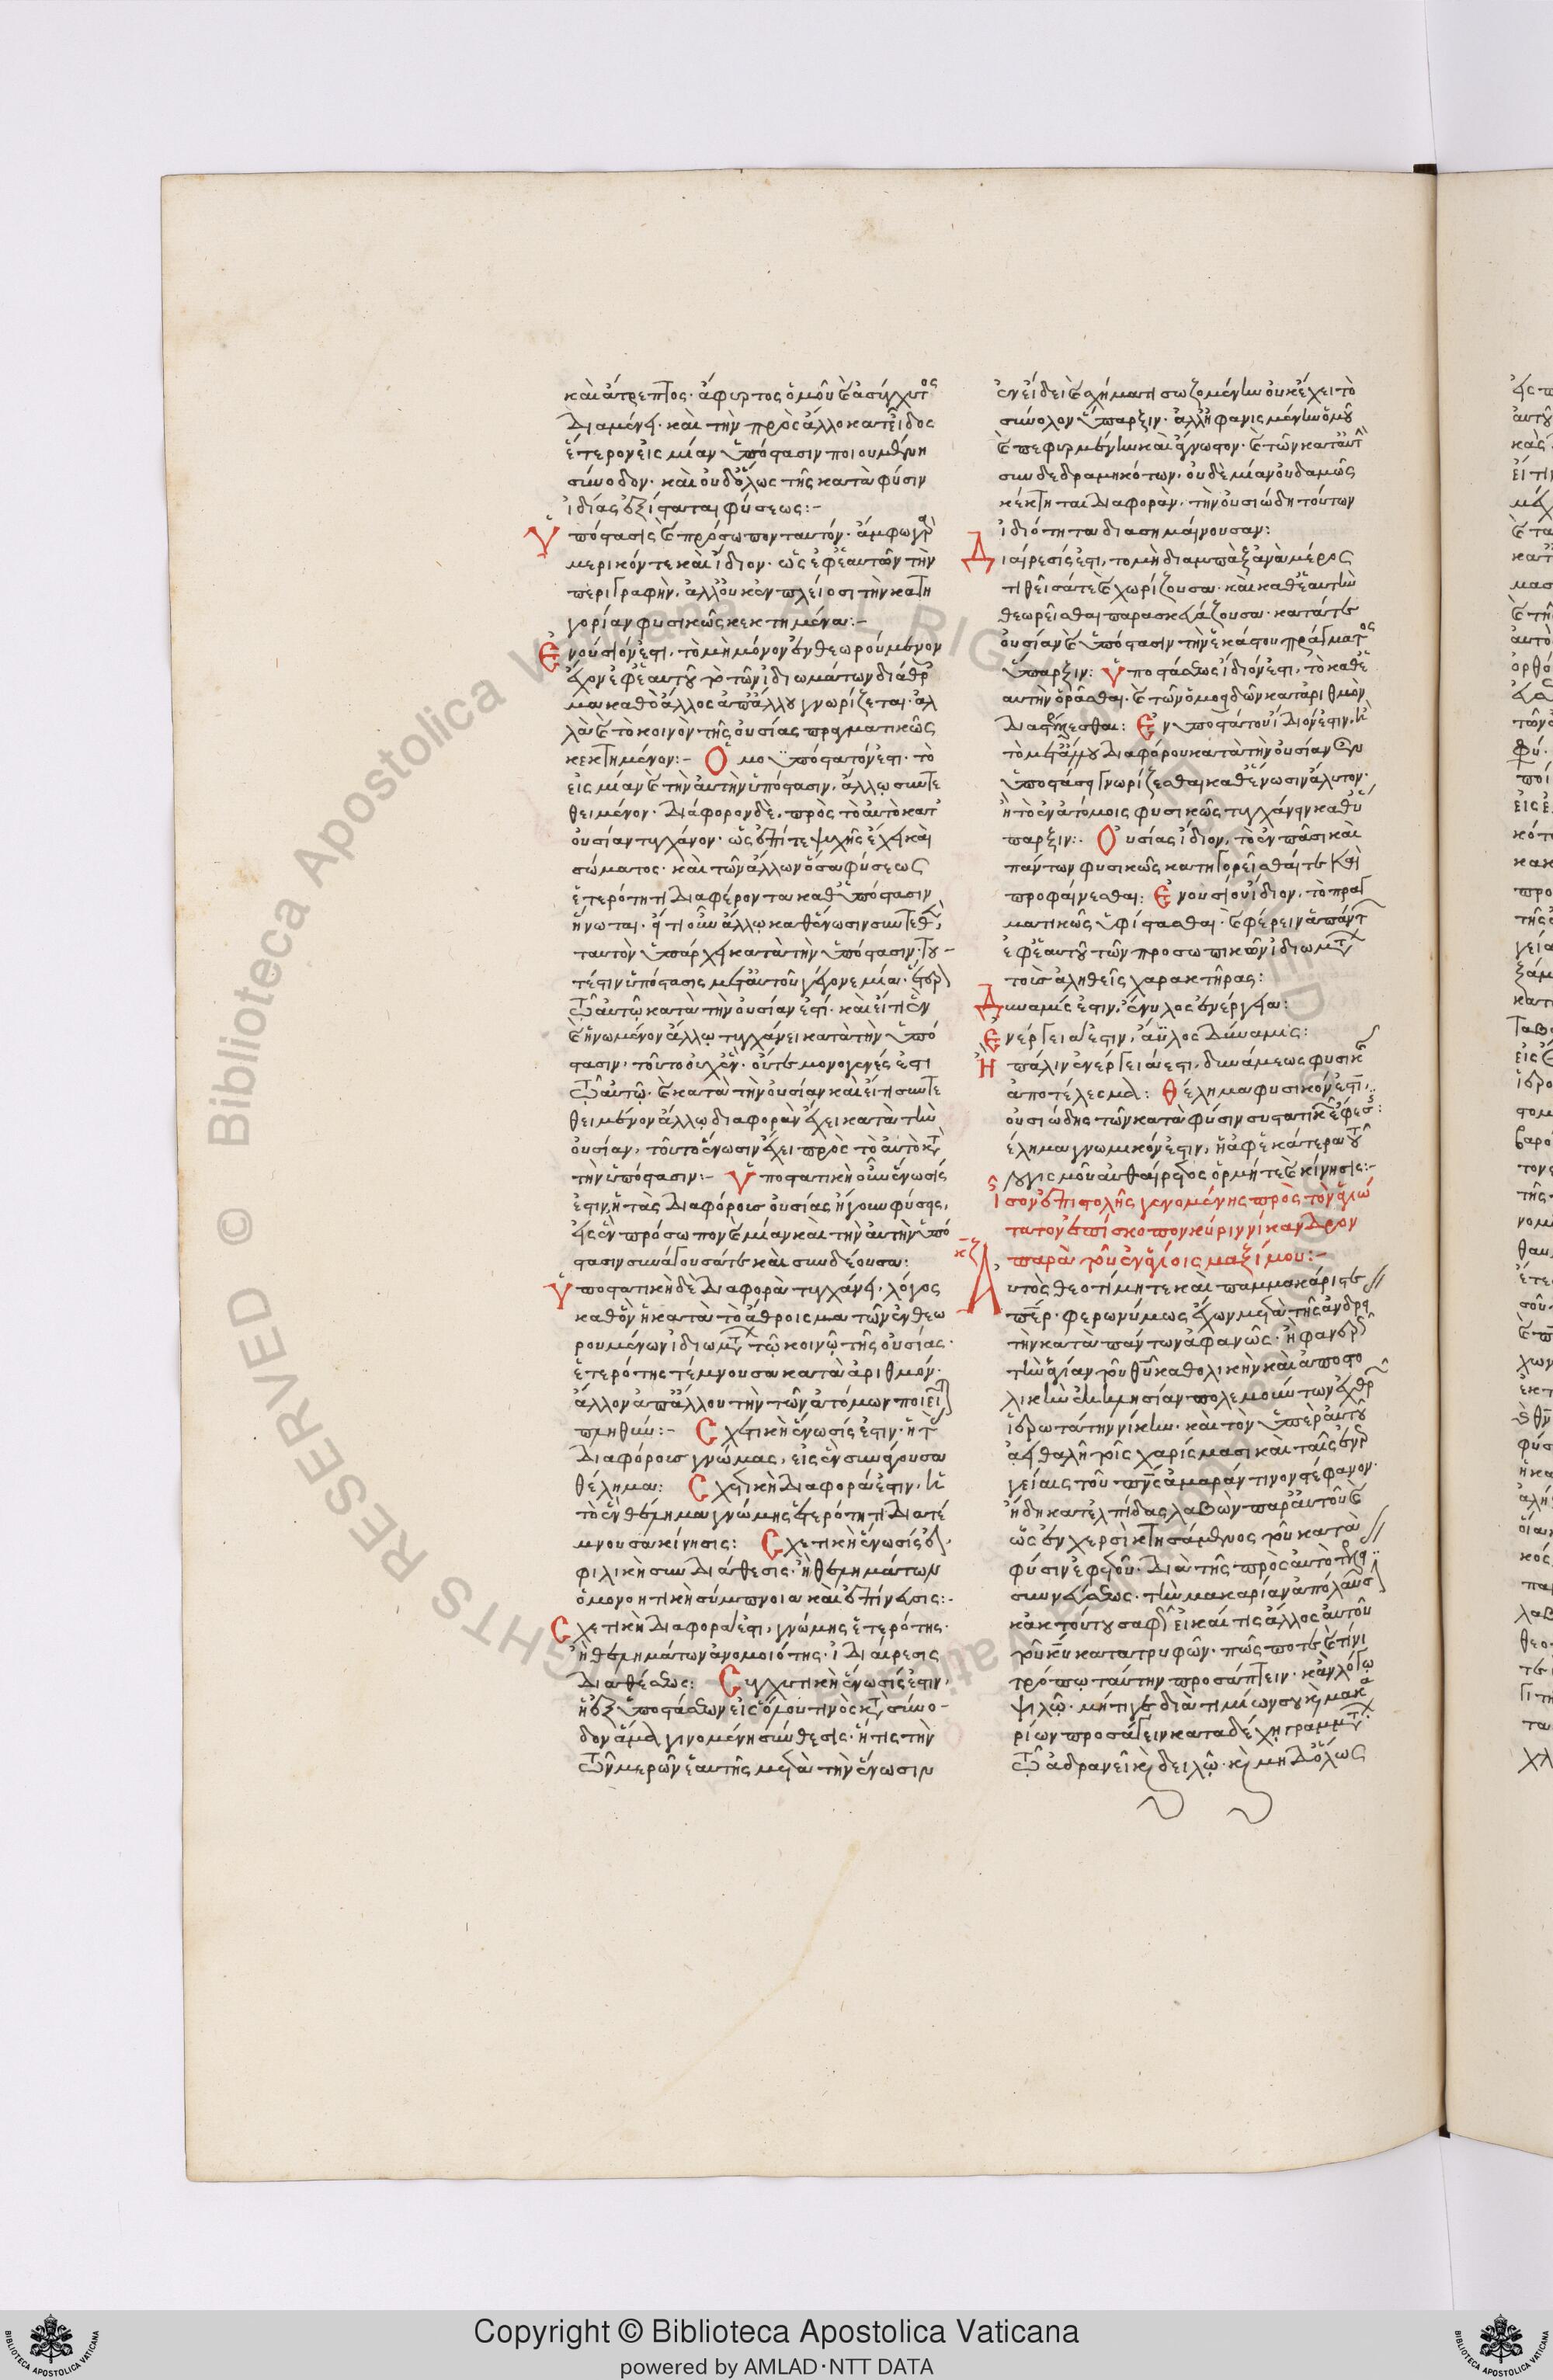 καὶ ἄτρεπτος· ἄφυρτος ὁμοῦ καὶ ἀσύγχυτος
διαμένει· καὶ τὴν πρὸς ἄλλο κατ εἶδος
ἕτερον εἰς μίαν ὑπόστασιν ποιουμένη
σύνοδον· καὶ οὐδόλως τῆς κατὰ φύσιν
ἰδίας ἐξίσταται φύσεως:-
Ὑπόστασις καὶ πρόσωπον ταυτόν· ἄμφω γὰρ
μερικόν τε καὶ ἴδιον· ὡς ἐφ ἑαυτῶν τὴν
περιγραφήν, ἀλλ οὐκ ἐν πλείοσι τὴν κατη
γορίαν φυσικῶς κεκτημένα:-
Ἐνούσιόν ἐστι, τὸ μὴ μόνον ἐνθεωρούμενον
ἔχον ἐφ ἑαυτοῦ τὸ τῶν ἰδιωμάτων ἄθροισ
μα καθ ὃ ἄλλος ἀπ ἄλλου γνωρίζεται· ἀλ
λὰ καὶ τὸ κοινὸν τῆς οὐσίας πραγματικῶς
κεκτημένον:- Ὁμοϋπόστατόν ἐστι· τὸ
εἰς μίαν καὶ τὴν αὐτὴν ὑπόστασιν, ἄλλω συντε
θειμένον· διάφορον δὲ, πρὸς τὸ αὐτὸ κατ
οὐσίαν τυγχάνον· ὡς ἐπί τε ψυχῆς ἔχει καὶ
σώματος· καὶ τῶν ἄλλων ὅσα φύσεως
ἑτερότητι διαφέροντα καθ ὑπόστασιν
ἥνωται· εἴ τι οὖν ἄλλω καθ ἕνωσιν συντεθῆ,
ταυτὸν ὑπάρχει κατὰ τὴν ὑπόστασιν· του
τέστιν ὑπόστασις μετ αὐτοῦ γέγονε μία· ἕτερον
τῶ αὐτῶ κατὰ τὴν οὐσίαν ἐστί· καὶ εἴ τι ἓν
καὶ ἡνωμένον ἄλλω τυγχάνει κατὰ τὴν ὑπό
στασιν, τοῦτο οὐχ ἓν· οὔτε μονογενές ἐστι
τῶ αὐτῶ· καὶ κατὰ τὴν οὐσίαν καὶ εἴ τι συντε
θειμένον ἄλλω διαφορὰν ἔχει κατὰ τὴν
οὐσίαν, τοῦτο ἕνωσιν ἔχει πρὸς τὸ αὐτὸ κατὰ
τὴν ὑπόστασιν:- Ὑποστατικὴ οὖν ἕνωσίς
ἐστιν, ἡ τὰς διαφόρους οὐσίας ἤγουν φύσεις,
εἰς ἓν πρόσωπον καὶ μίαν καὶ τὴν αὐτὴν ὑπό
στασιν συνάγουσά τε καὶ συνδέουσα:
Ὑποστατικὴ δὲ διαφορὰ τυγχάνει, λόγος
καθ ὃν ἡ κατὰ τὸ ἄθροισμα τῶν ἐνθεω
ρουμένων ἰδιωμάτων τῶ κοινῶ τῆς οὐσίας·
ἑτερότης τέμνουσα κατὰ ἀριθμόν·
ἄλλον ἀπ ἄλλου τὴν τῶν ἀτόμων ποιεῖται
πληθύν:- Σχετικὴ ἕνωσίς ἐστιν· ἡ τὰς
διαφόρους γνώμας, εἰς ἓν συνάγουσα
θέλημα: Σχετικὴ διαφορά ἐστιν, ἡ
τὸ ἓν θέλημα γνώμης ἑτερότητι διατέ
μνουσα κίνησις: Σχετικὴ ἕνωσίς ἐστι,
φιλικὴ συνδιάθεσις· ἢ θελημάτων
ὁμονοητικὴ σύμπνοια καὶ ἐπίνευσις:-
Σχετικὴ διαφορά ἐστι, γνώμης ἑτερότης·
ἢ θελημάτων ἀνομοιότης· ἢ διαίρεσις
διαθέσεως: Συγχυτικὴ ἕνωσίς ἐστιν,
ἡ ἐξ ὑποστάσεων εἰς ὅλου τινὸς κατὰ σύνο-
δον ἅμα γινομένη σύνθεσις· ἥτις τὴν
τῶν μερῶν ἑαυτῆς μετὰ τὴν ἕνωσιν
ἐν εἴδει καὶ σχήματι σωζομένην οὐκ ἔχει τὸ
σύνολον ὕπαρξιν· ἀλλ ἠφανισμένην ὁμοῦ
καὶ πεφυρμένην καὶ ἄγνωστον· καὶ τῶν κατ αὐτὴν
συνδεδραμηκότων, οὐδὲ μίαν οὐδαμῶς
κέκτηται διαφορὰν, τὴν οὐσιώδη τούτων
ἰδιότητα διασημαίνουσαν:
Διαίρεσίς ἐστι, τομὴ διαμπὰξ ἀνὰ μέρος
τιθεῖσά τε καὶ χωρίζουσα· καὶ καθ ἑαυτὴν
θεωρεῖσθαι παρασκευάζουσα· κατά τε
οὐσίαν καὶ ὑπόστασιν τὴν ἑκάστου πράγματος
ὕπαρξιν: Ὑποστάσεως ἴδιόν ἐστι, τὸ καθ ἑ
αυτὴν ὁρᾶσθαι· καὶ τῶν ὁμοειδῶν κατ ἀριθμὸν
διαστέλλεσθαι: Ἐνυποστάτου ἴδιόν ἐστιν, ἢ
τὸ μετ ἄλλου διαφόρου κατὰ τὴν οὐσίαν ἐν
ὑποστάσει γνωρίζεσθαι καθ ἕνωσιν ἄλυτον·
ἢ τὸ ἐν ἀτόμοις φυσικῶς τυγχάνειν καθ ὕ
παρξιν:· Οὐσίας ἴδιον, τὸ ἐν πᾶσι καὶ
πάντων φυσικῶς κατηγορεῖσθαί τε καὶ
προφαίνεσθαι: Ἐνουσίου ἴδιον, τὸ πραγ
ματικῶς ὑφίστασθαι· καὶ φέρειν ἅπαντας
ἐφ ἑαυτοῦ τῶν προσωπικῶν ἰδιωμάτων
τοὺς ἀληθεῖς χαρακτῆρας:
Δύναμίς ἐστιν, ἔνυλος ἐνέργεια:
Ἐνέργειά ἐστιν, ἄϋλος δύναμις:
Ἢ πάλιν ἐνέργειά ἐστι, δυνάμεως φυσικῆς
ἀποτέλεσμα: Θέλημα φυσικόν ἐστιν,
οὐσιώδης τῶν κατὰ φύσιν συστατικῶν ἔφεσις:
έλημα γνωμικόν ἐστιν, ἡ ἀφ ἑκάτερα τοῦ
λογισμοῦ αὐθαίρετος ὁρμή τε καὶ κίνησις:-
Ἴσον ἐπιστολῆς γενομένης πρὸς τὸν ἁγιώ
τατον ἐπίσκοπον κύριν νίκανδρον
παρὰ τοῦ ἐν ἁγίοις μαξίμου:-
κζ
Αὐτὸς θεοτίμητε καὶ παμμακάριστε
πάτερ· φερωνύμως ἔχων μετὰ τῆς ἀνδρεί
τὴν κατὰ πάντων ἀφανῶς· ἢ φανερῶς
τὴν ἁγίαν τοῦ θεοῦ καθολικὴν καὶ ἀποστο
λικὴν ἐκκλησίαν πολεμούντων ἐχθρῶν
ἱδρωτάτην νίκην· καὶ τὸν ὑπὲρ αὐτοῦ
ἀειθαλῆ τοῖς χαρίσμασι καὶ ταῖς ἐνερ
γείαις τοῦ πνεύματος ἀμαράντινον στέφανον·
ἤδη κατ ἐλπίδας λαβὼν παρ αὐτοῦ καὶ
ὡς ἐν χερσὶ κτησάμενος τοῦ κατὰ
φύσιν ἐφετοῦ· διὰ τῆς πρὸς αὐτὸ
συννεύσεως· τὴν μακαρίαν ἀπόλαυσιν
κἀκ τούτου σαφῶς εἰ καί τις ἄλλος αὐτοῦ
τοῦ κυρίου κατατρυφῶν· πῶς ποτε καὶ τίνι
τρόπω ταύτην προσάπτειν· κἂν λόγω
ψιλῶ· μή τί γε διὰ τιμίων σου καὶ μακα
ρίων προσάγειν καταδέχη γραμμάτων·
τῶ ἀδρανεῖ καὶ δειλῶ· καὶ μηδόλως